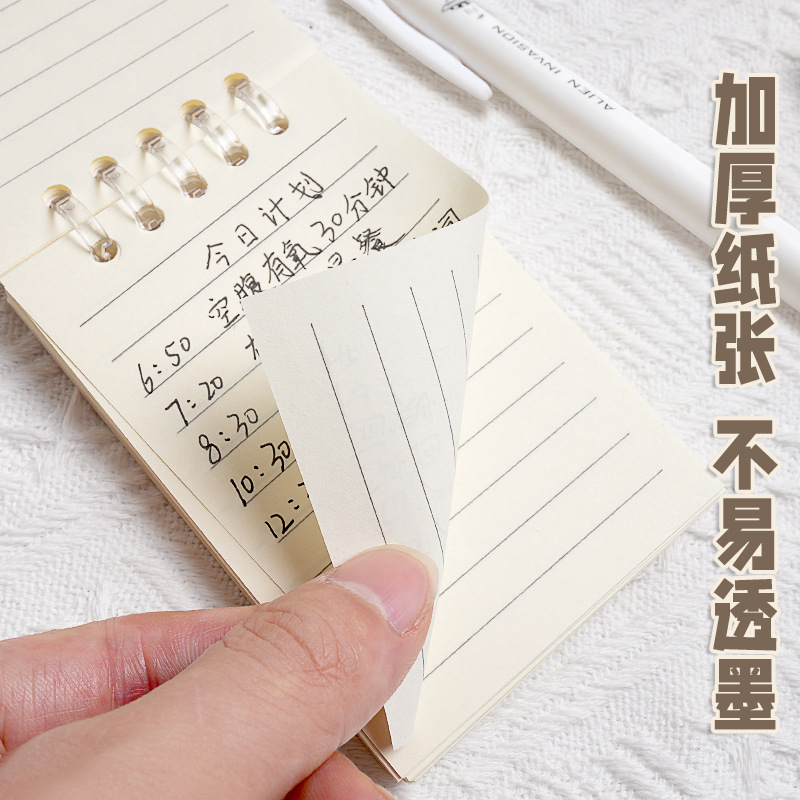 今日计划
6:50 空腹有氧30分钟
7:20
8:30
10:30
12:
ALIEN INVASION
加厚纸张 不易透墨